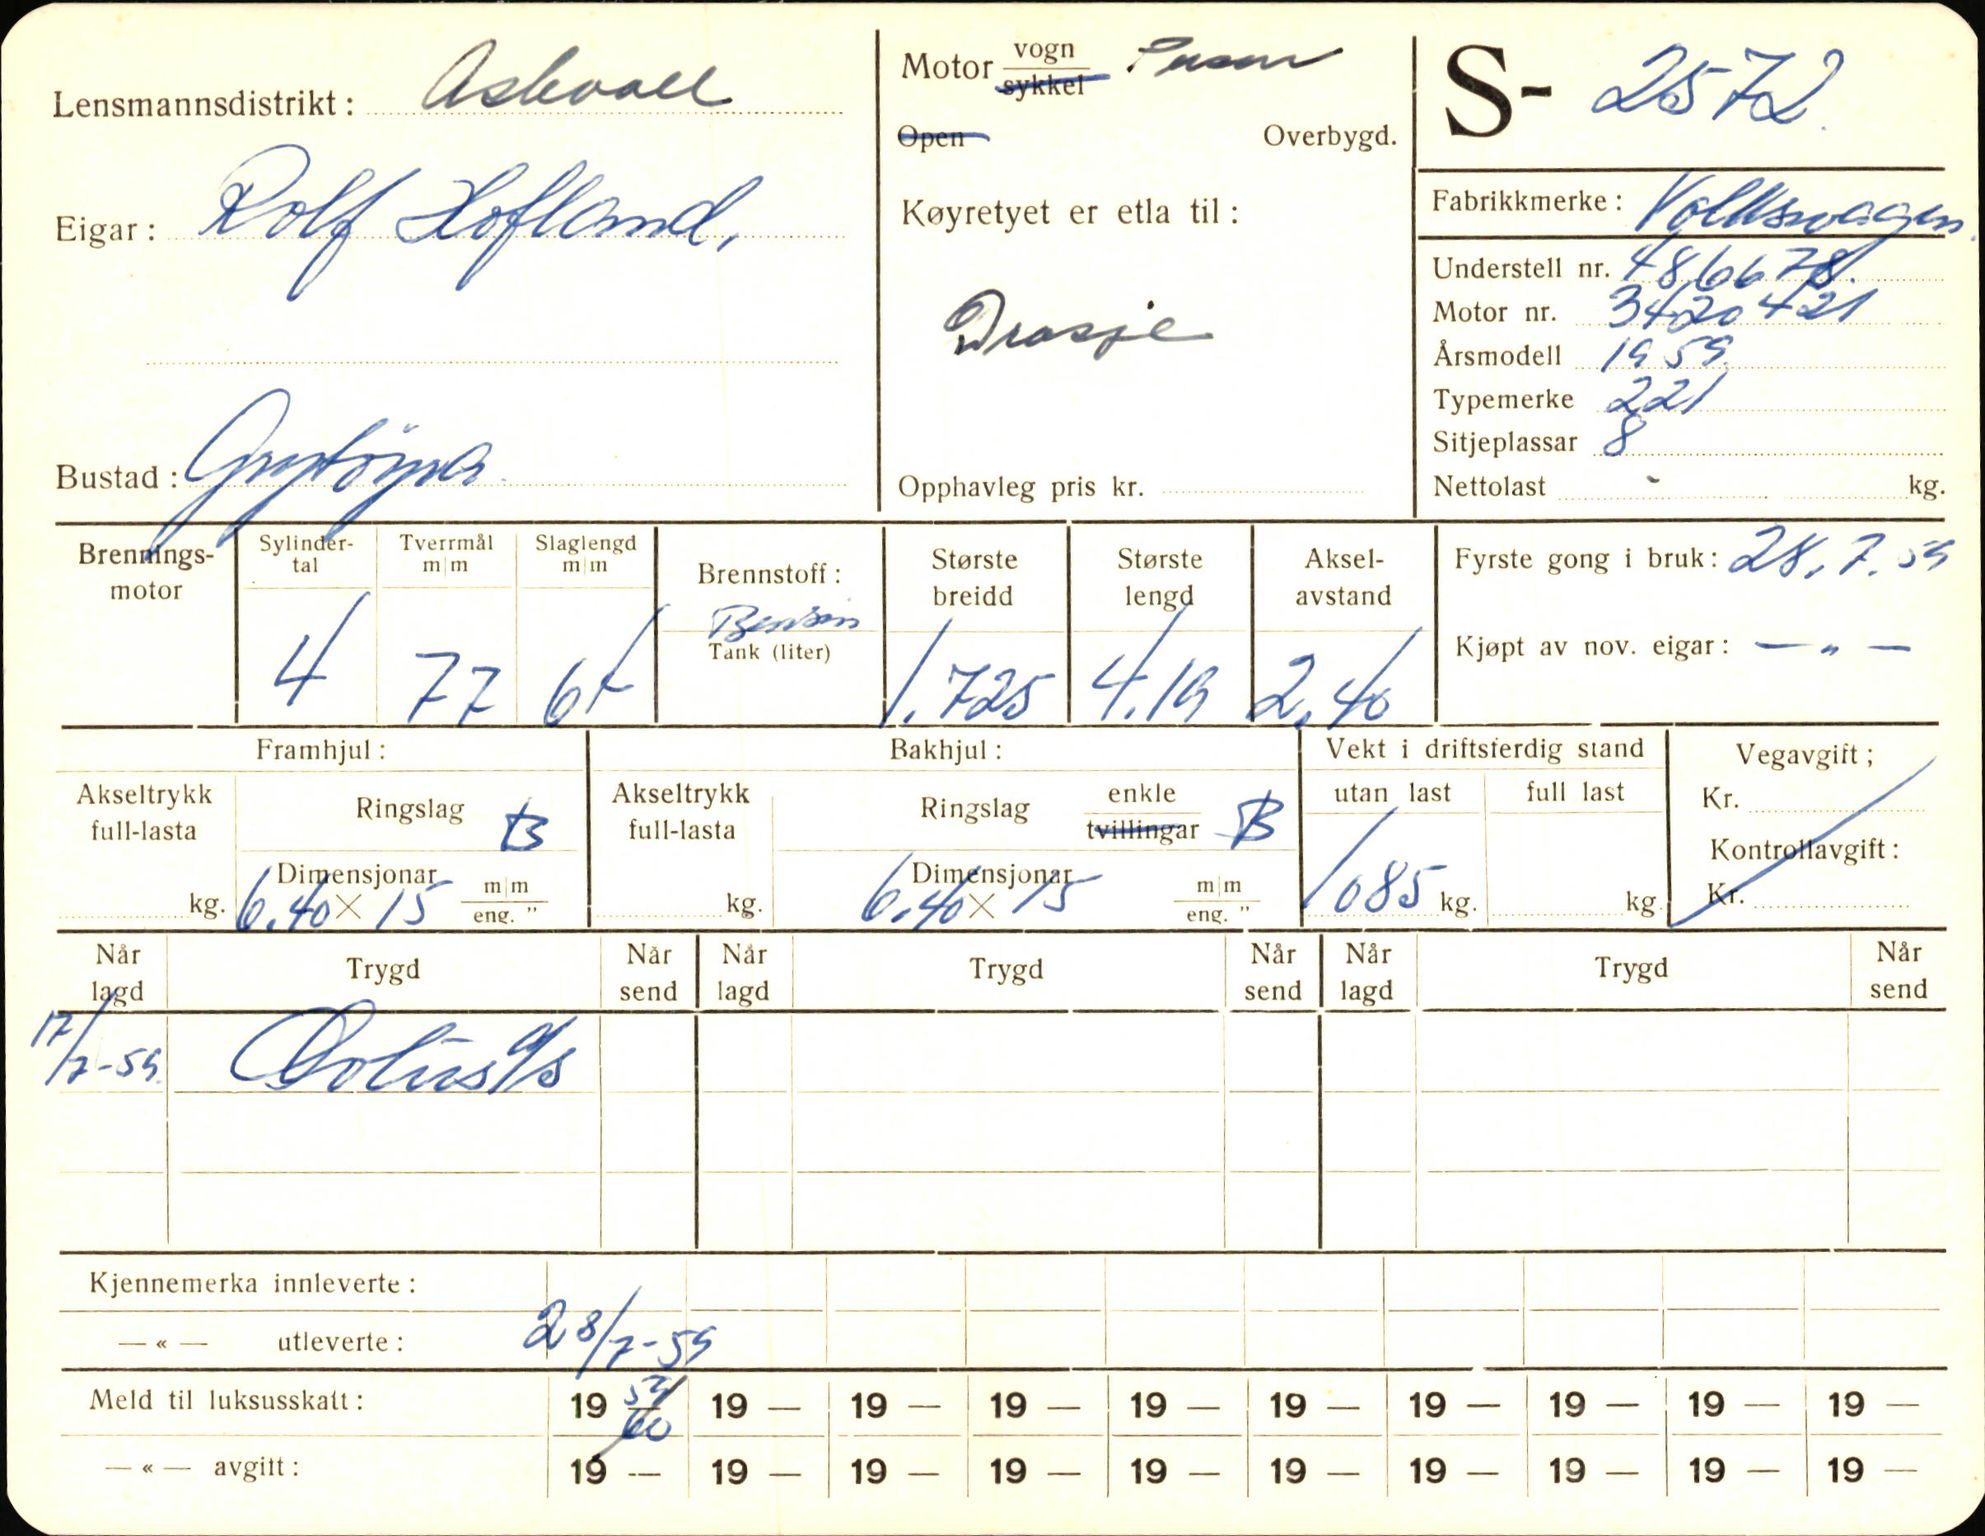 Lensmannsdistrikt: Askvoll
Eigar: Rolf Hofland,
Bustad: Grytöyra
Motor vogn
sykkel Person
Open Overbygd.
Køyretyet er etla til:
Drosje
Opphavleg pris kr.
S- 2572
Fabrikkmerke: Volkswagen
Understell nr. 486678
Motor nr. 3420421
Årsmodell 1959
Typemerke 221
Sitjeplassar 8
Nettolast - kg.
Brennings-
motor
Sylinder-
tal
4
Tverrmål
m|m
77
Slaglengd
m|m
64
Brennstoff:
Bensin
Tank (liter)
Største
breidd
1.725
Største
lengd
4.19
Aksel-
avstand
2,40
Fyrste gong i bruk: 28.7.59
Kjøpt av nov. eigar: — „ —
Framhjul:
Akseltrykk
full-lasta
kg.
Ringslag B
Dimensjonar
6.40 × 15 m|m
eng. "
Bakhjul:
Akseltrykk
full-lasta
kg.
Ringslag enkle
tvillingar B
Dimensjonar
6.40 × 15 m|m
eng. "
Vekt i driftsferdig stand
utan last full last
1085 kg. kg.
Vegavgift;
Kr.
Kontrollavgift:
Kr.
Når
lagd Trygd Når
send Når
lagd Trygd Når
send Når
lagd Trygd Når
send
17/7-59 Polius a/s
Kjennemerka innleverte:
— « — utleverte: 28/7-59
Meld til luksusskatt: 19 59/60 19 — 19 — 19 — 19 — 19 — 19 — 19 — 19 — 19 —
— « — avgift: 19 — 19 — 19 — 19 — 19 — 19 — 19 — 19 — 19 — 19 —